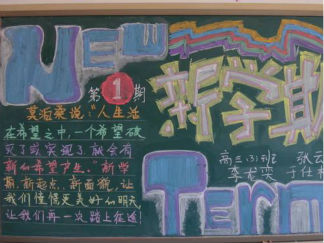 New
第1期
新学期
莫泊桑说:"人生活
在希望之中,一个希望破
灭了或实现了,就会有
新的希望产生。"新学
期,新起点,新面貌,让
我们憧憬更美好的明天,
让我们再一次踏上征途!
高三(3)班
Term